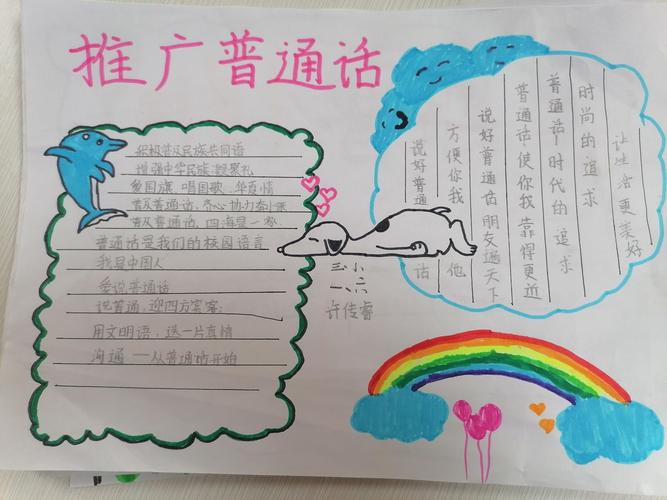 推广普通话
积极普及民族共同语
增强中华民族凝聚礼
爱国旗、唱国歌、华真情
普及普通话，齐心协力奔小康
普及普通话，四海是一家
普通话是我们的校园语言
我是中国人
爱说普通话
说普通，迎四方宾客；
用文明语，送一片真情
沟通——从普通话开始
三小
一、六
许传睿
让生活更美好
时尚的追求
普通话，时代的追求
普通话，使你我靠得更近
说好普通话朋友遍天下
方便你我他
说好普通话